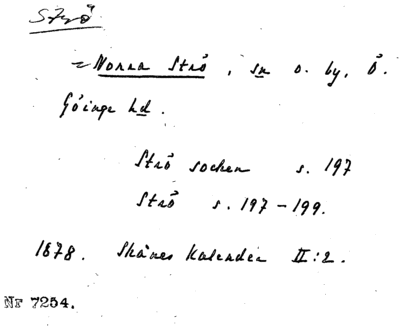 Strö
= Norra Strö, sn o. by, Ö.
Göinge hd.
Strö socken s. 197
Strö s. 197-199.
1878. Skånes Kalender II:2.
Nr 7254.